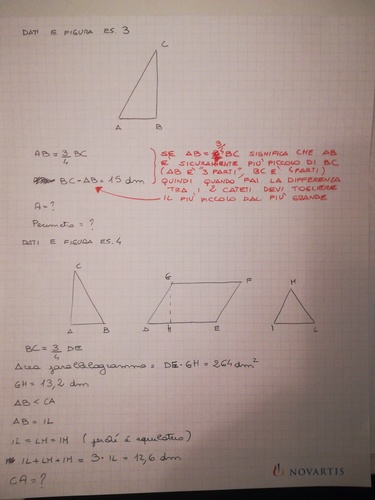 DATI E FIGURA ES. 3
C
A B
AB = 3/4 BC
BC - AB = 15 dm
A = ?
Perimetro = ?
SE AB = 3/4 BC SIGNIFICA CHE AB
E' SICURAMENTE PIU' PICCOLO DI BC
(AB E' "3 PARTI", BC E' 4 PARTI)
QUINDI QUANDO FAI LA DIFFERENZA
TRA I 2 CATETI DEVI TOGLIERE
IL PIU' PICCOLO DAL PIU' GRANDE
DATI E FIGURA ES. 4
C
A B
G F
D H E
H
I L
BC = 3/4 DE
Area parallelogramma = DE · GH = 264 dm²
GH = 13,2 dm
AB < CA
AB = IL
IL = LH = IH (perché è equilatero)
IL + LH + IH = 3 · IL = 12,6 dm
CA = ?
NOVARTIS